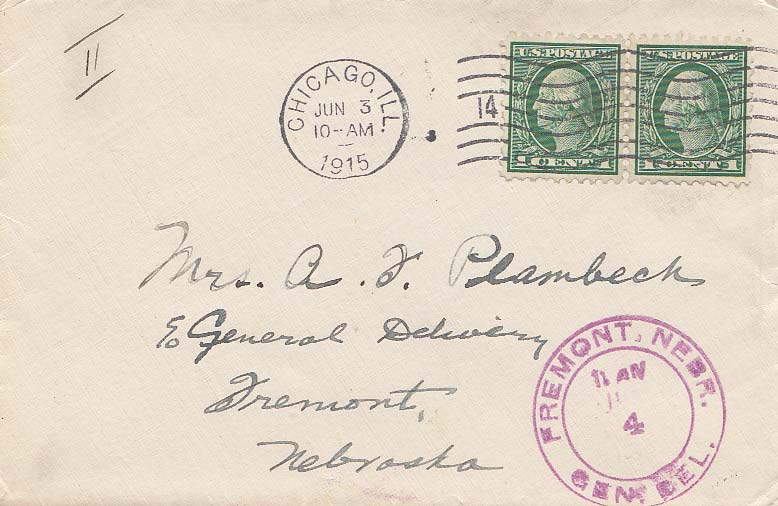 11
CHICAGO, ILL.
JUN 3
10-AM
1915
14
U.S. POSTAGE
1 CENT 1
U.S. POSTAGE
1 CENT 1
Mrs. A. F. Plambeck
c/o General Delivery
Fremont,
Nebraska
FREMONT, NEBR.
11 AM
4
GEN. DEL.